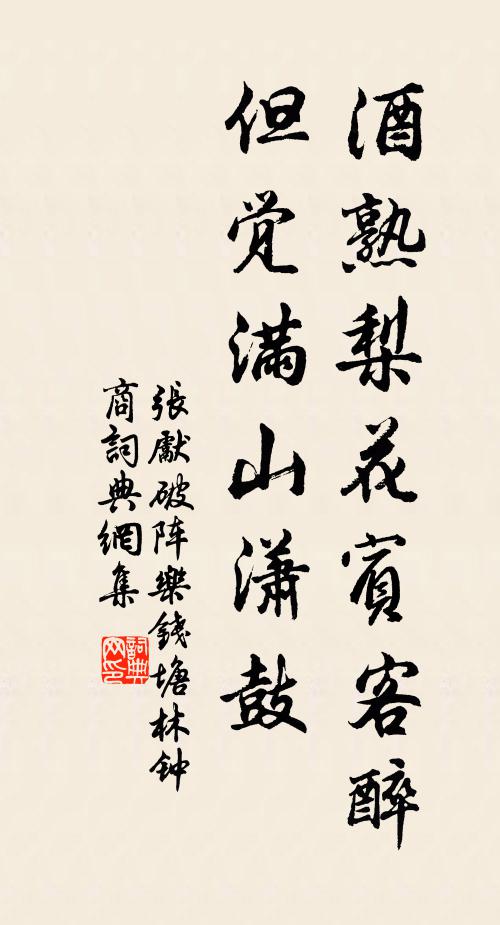 酒熟梨花賓客醉
但觉滿山瀟鼓
張獻破阵樂錢塘林钟
商詞典網集
詞典网印